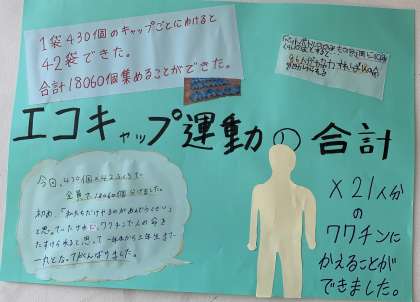 1袋430個のキャップごとにわけると
42袋できた。
合計18060個集めることができた。
エコキャップ運動の合計
今日、430個の42ふくろで
全員で18060個分けました。
初め、「私たちだけやるのがめんどうくさい」
と思っていたけれど、ワクチンで人の命を
たすけられると思って一年生から六年生まで
一丸となってがんばりました。
×21人分
の
ワクチンに
かえることが
できました。